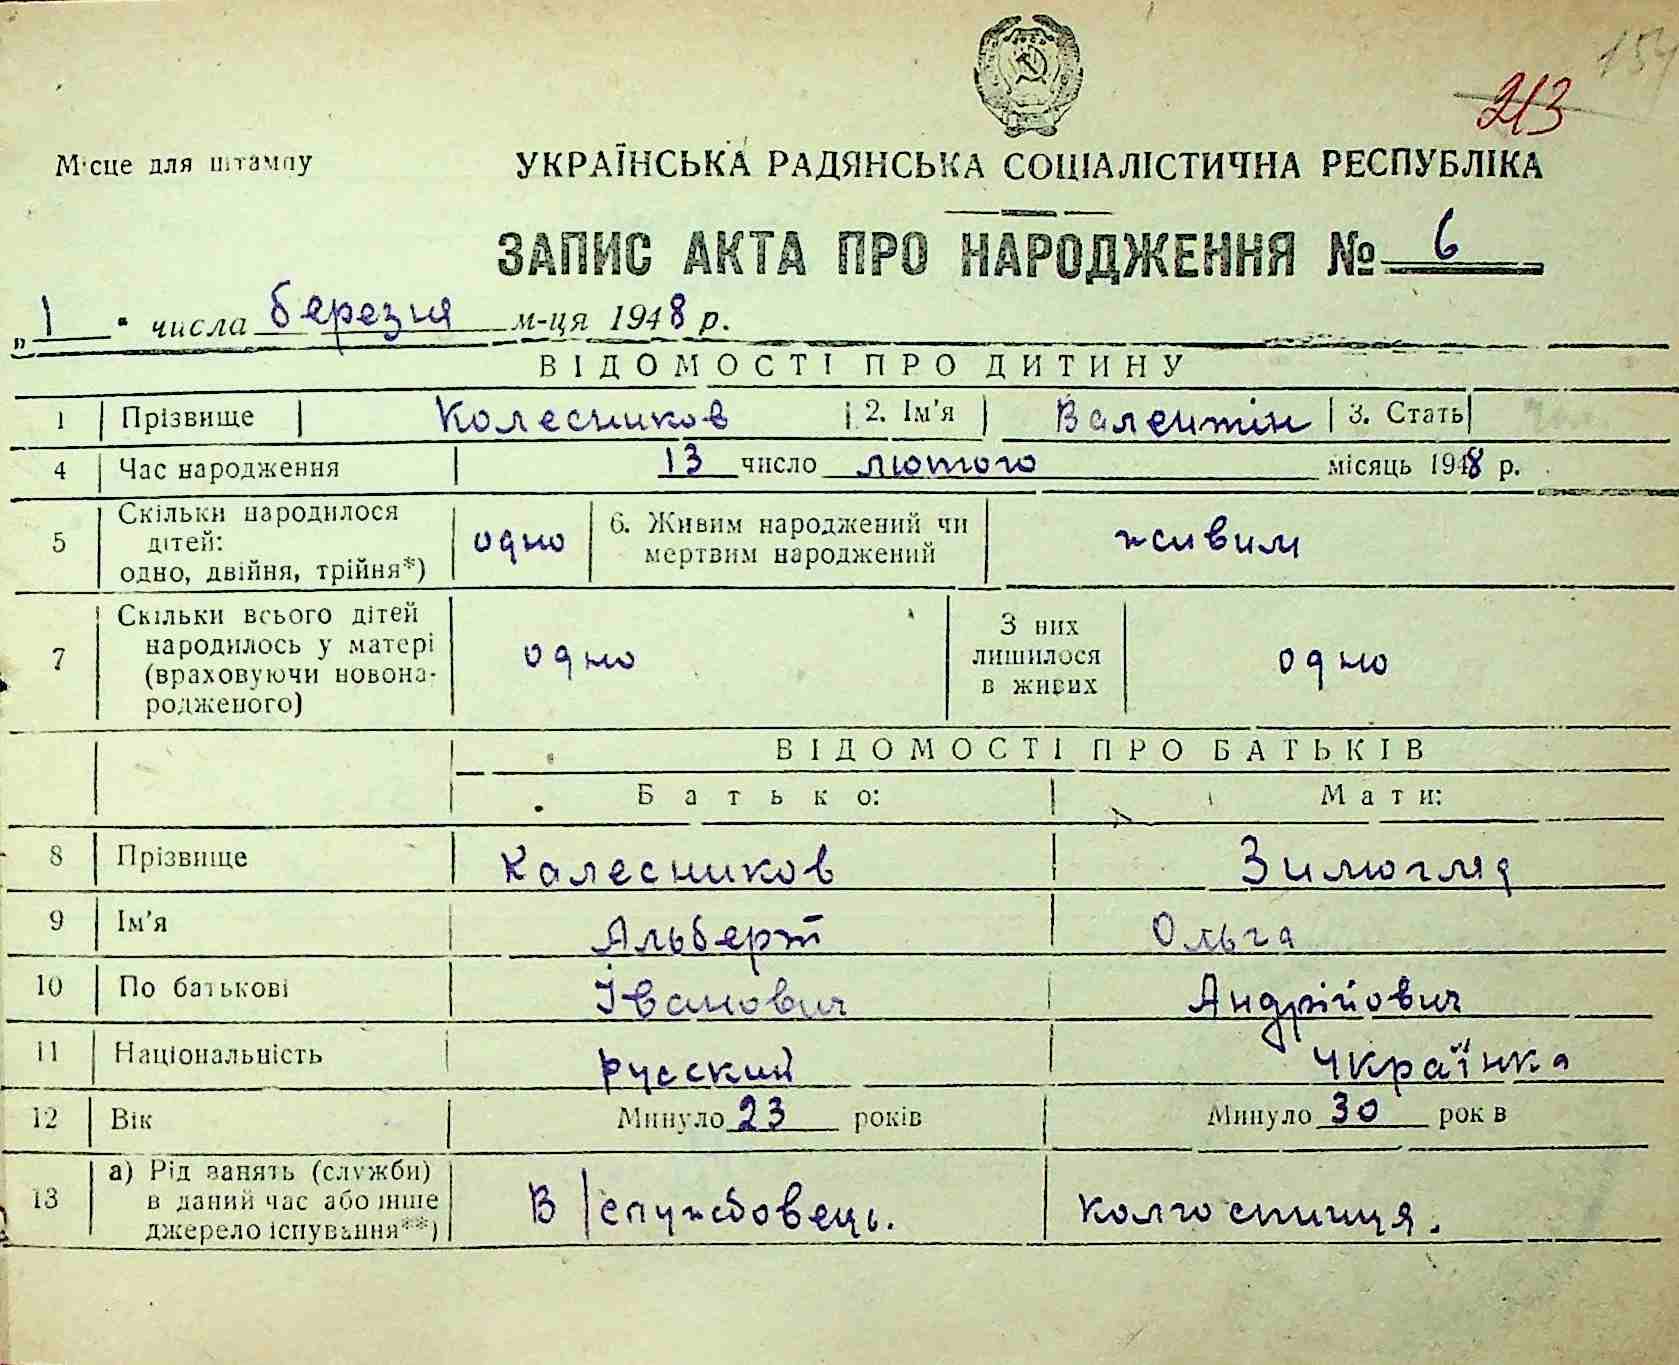 154
213
Місце для штампу
УКРАЇНСЬКА РАДЯНСЬКА СОЦІАЛІСТИЧНА РЕСПУБЛІКА
ЗАПИС АКТА ПРО НАРОДЖЕННЯ № 6
„1" числа березня м-ця 1948 р.
ВІДОМОСТІ ПРО ДИТИНУ
1 Прізвище Колесников 2. Ім'я Валентін 3. Стать
4 Час народження 13 число лютого місяць 1948 р.
5 Скільки народилося дітей: одно, двійня, трійня*) одно 6. Живим народжений чи мертвим народжений живим
7 Скільки всього дітей народилось у матері (враховуючи новонародженого) одно З них лишилося в живих одно
ВІДОМОСТІ ПРО БАТЬКІВ
Батько: Мати:
8 Прізвище Калесников Зимогляд
9 Ім'я Альберт Ольга
10 По батькові Іванович Андрійович
11 Національність русский українка
12 Вік Минуло 23 років Минуло 30 років
13 а) Рід занять (служби) в даний час або інше джерело існування**) В/службовець. колгоспниця.